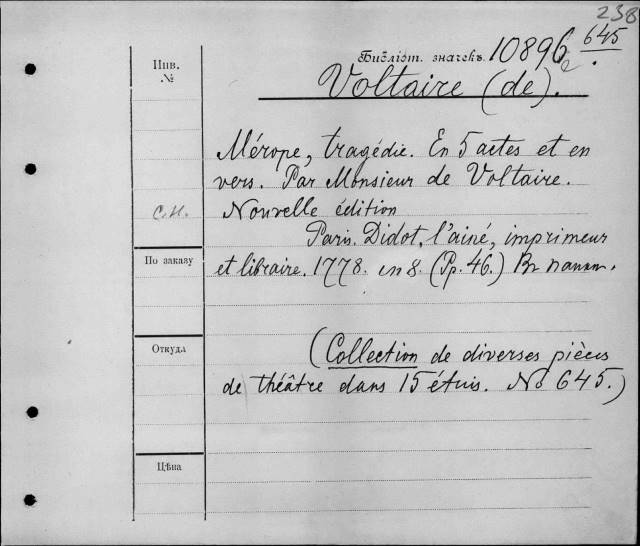 238
Библіот. значекъ. 10896 645
Инв.
№
Voltaire (de).
Mérope, tragédie. En 5 actes et en
vers. Par Monsieur de Voltaire.
С.И. Nouvelle édition
Paris. Didot, l'ainé, imprimeur
По заказу
et libraire. 1778. in 8. (Pp. 46.) Въ папкѣ.
Откуда
(Collection de diverses pièces
de théâtre dans 15 étuis. No 645.)
Цѣна